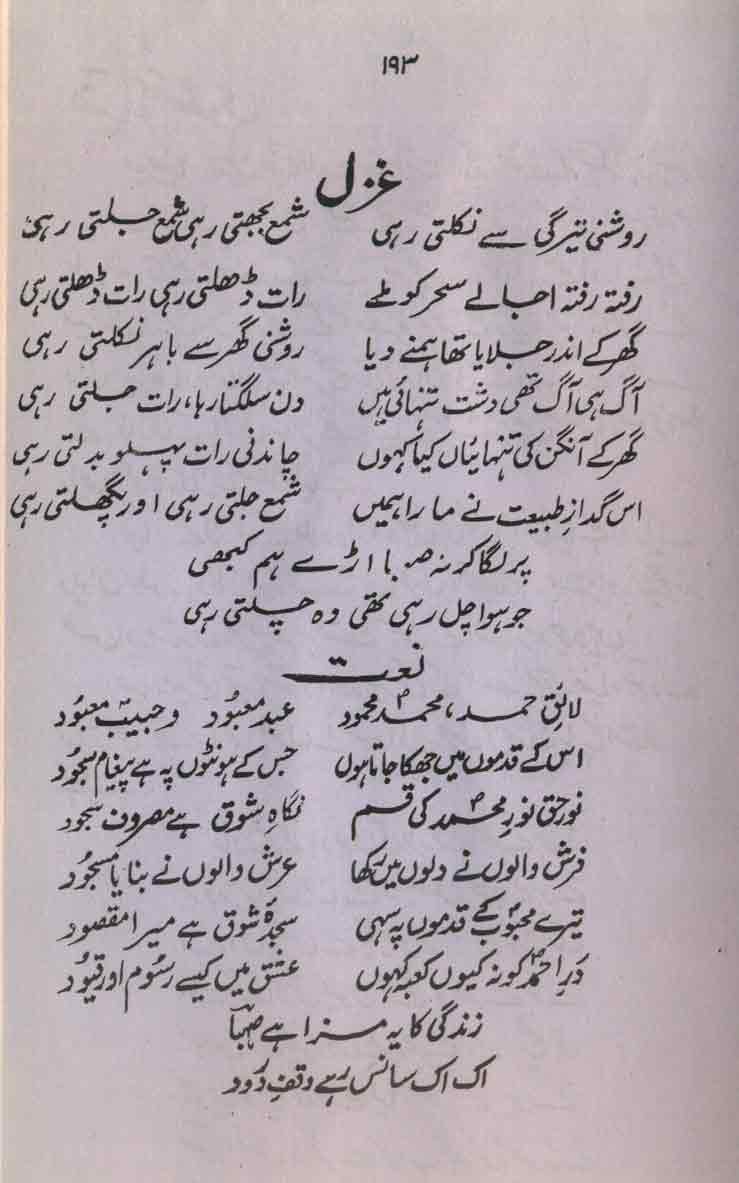 ۱۹۳
غزل
روشنی تیرگی سے نکلتی رہی شمع بجھتی رہی شمع جلتی رہی
رفتہ رفتہ اجالے سحر کو ملے رات ڈھلتی رہی رات ڈھلتی رہی
گھر کے اندر جلایا تھا ہمنے دیا روشنی گھر سے باہر نکلتی رہی
آگ ہی آگ تھی دشت تنہائی میں دن سلگتا رہا، رات جلتی رہی
گھر کے آنگن کی تنہائیاں کیا کہوں چاندنی رات پہلو بدلتی رہی
اس گدازِ طبیعت نے مارا ہمیں شمع جلتی رہی اور پگھلتی رہی
پر لگا کر نہ صہبا اڑے ہم کبھی
جو ہوا چل رہی تھی وہ چلتی رہی
نعت
لائقِ حمد، محمدؐ محمود عبد معبُود و حبیبِ معبُود
اس کے قدموں میں جھکا جاتا ہوں جس کے ہونٹوں پہ ہے پیغام سجُود
نورِ حق نورِ محمدؐ کی قسم نگاہِ شوق ہے مصروف سجود
فرش والوں نے دلوں میں رکھا عرش والوں نے بنایا مسجُود
تیرے محبُوبؐ کے قدموں پہ سہی سجدۂ شوق ہے میرا مقصود
درِ احمدؐ کو نہ کیوں کعبہ کہوں عشق میں کیسے رسُوم اور قیُود
زندگی کا یہ مزا ہے صہبؔا
اک اک سانس رہے وقفِ درُود